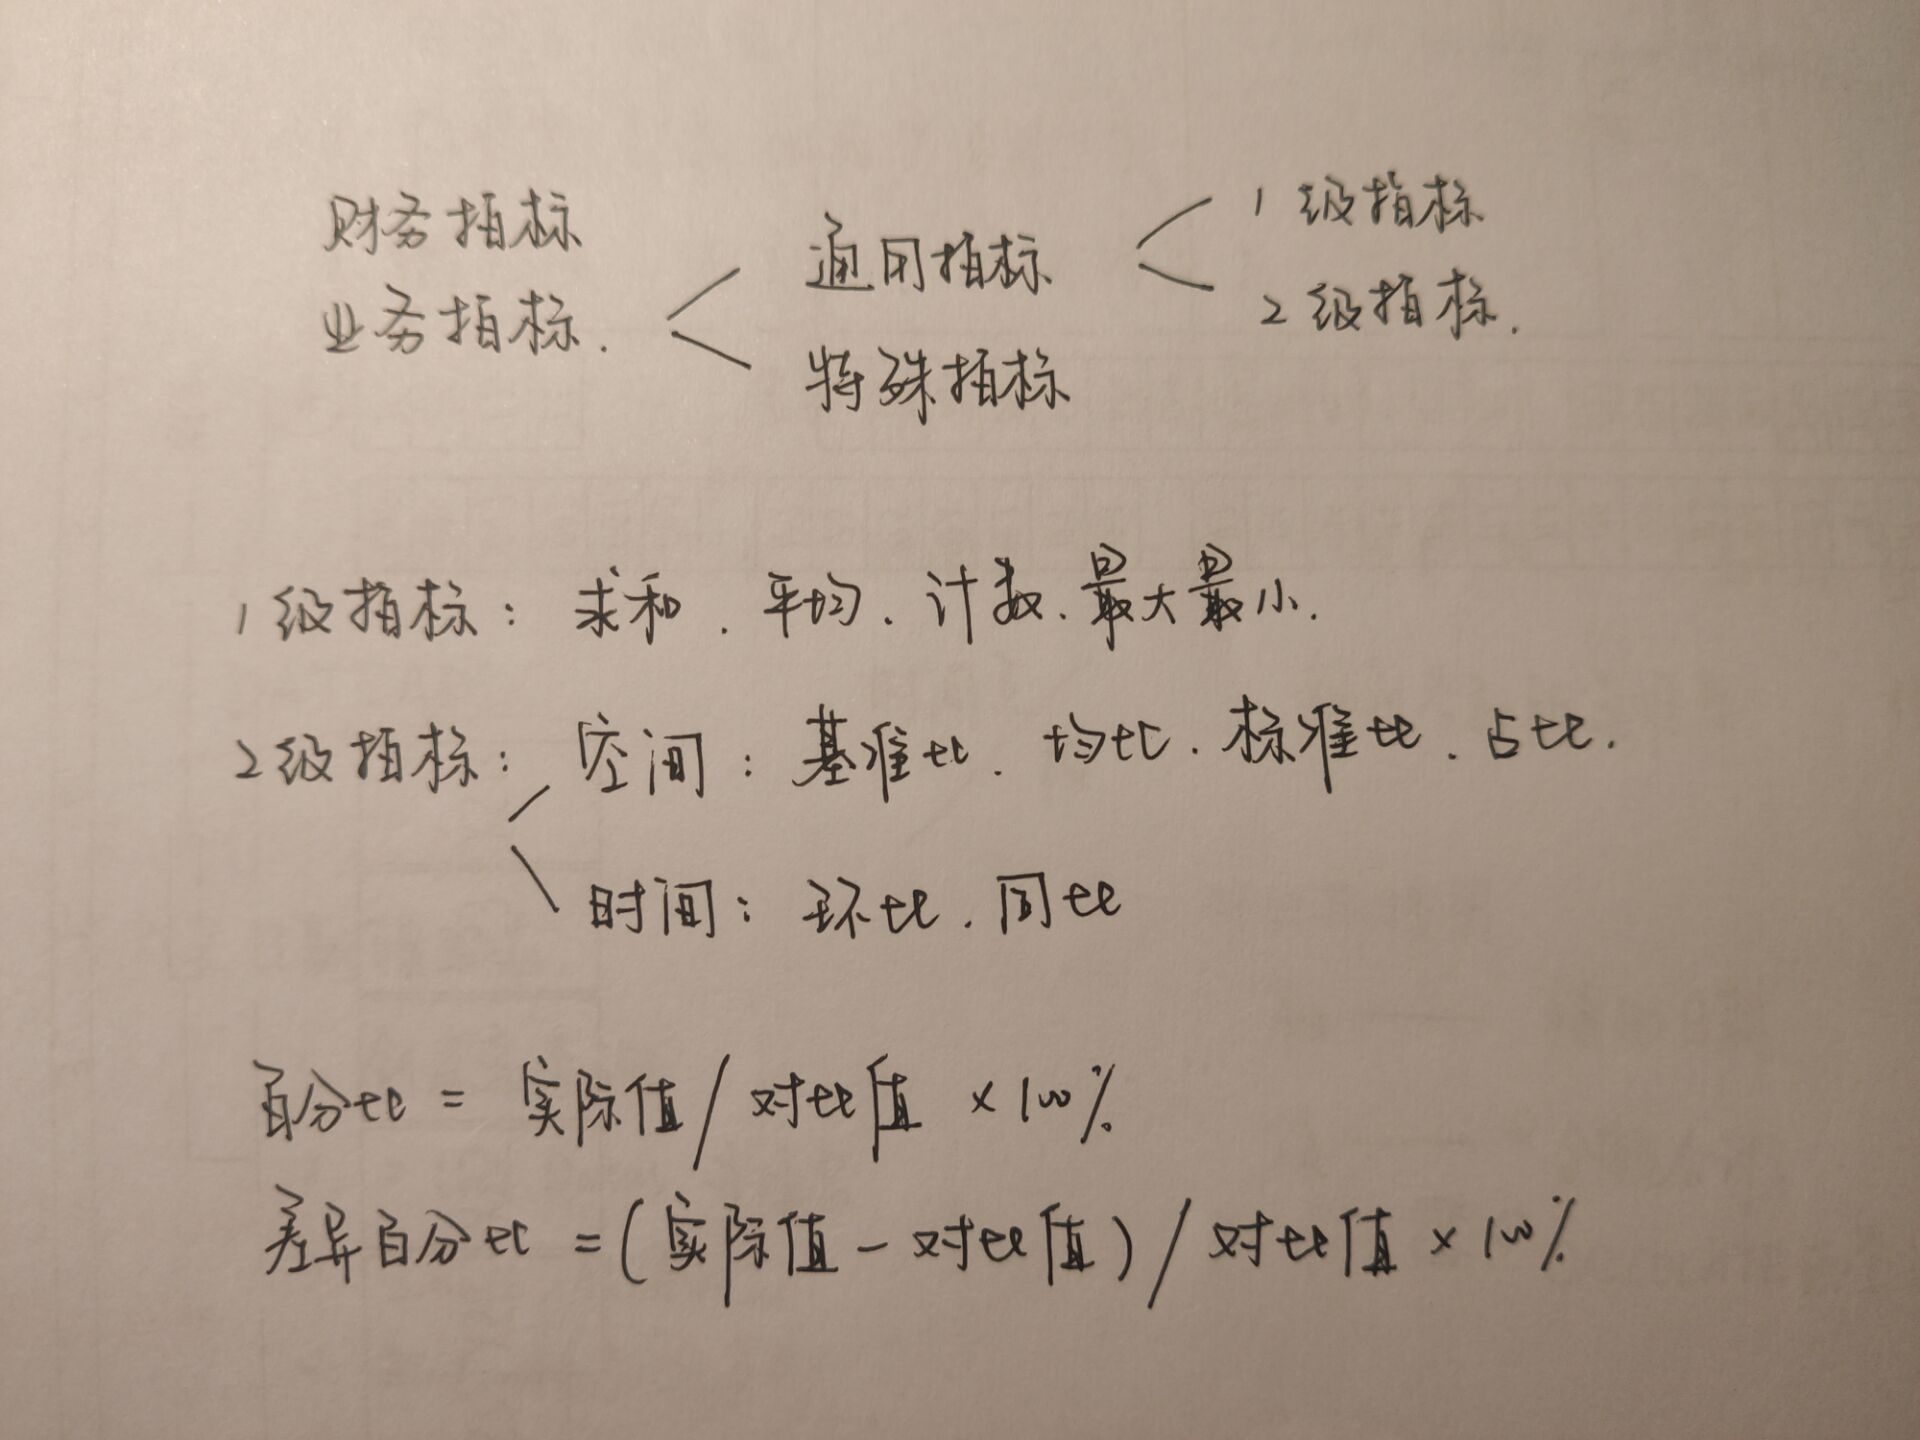 财务指标
业务指标.
通用指标
特殊指标
1级指标
2级指标.
1级指标: 求和. 平均. 计数. 最大最小.
2级指标: 空间: 基准比. 均比. 标准比. 占比.
时间: 环比. 同比
百分比 = 实际值/对比值 ×100%
差异百分比 =(实际值-对比值)/对比值×100%